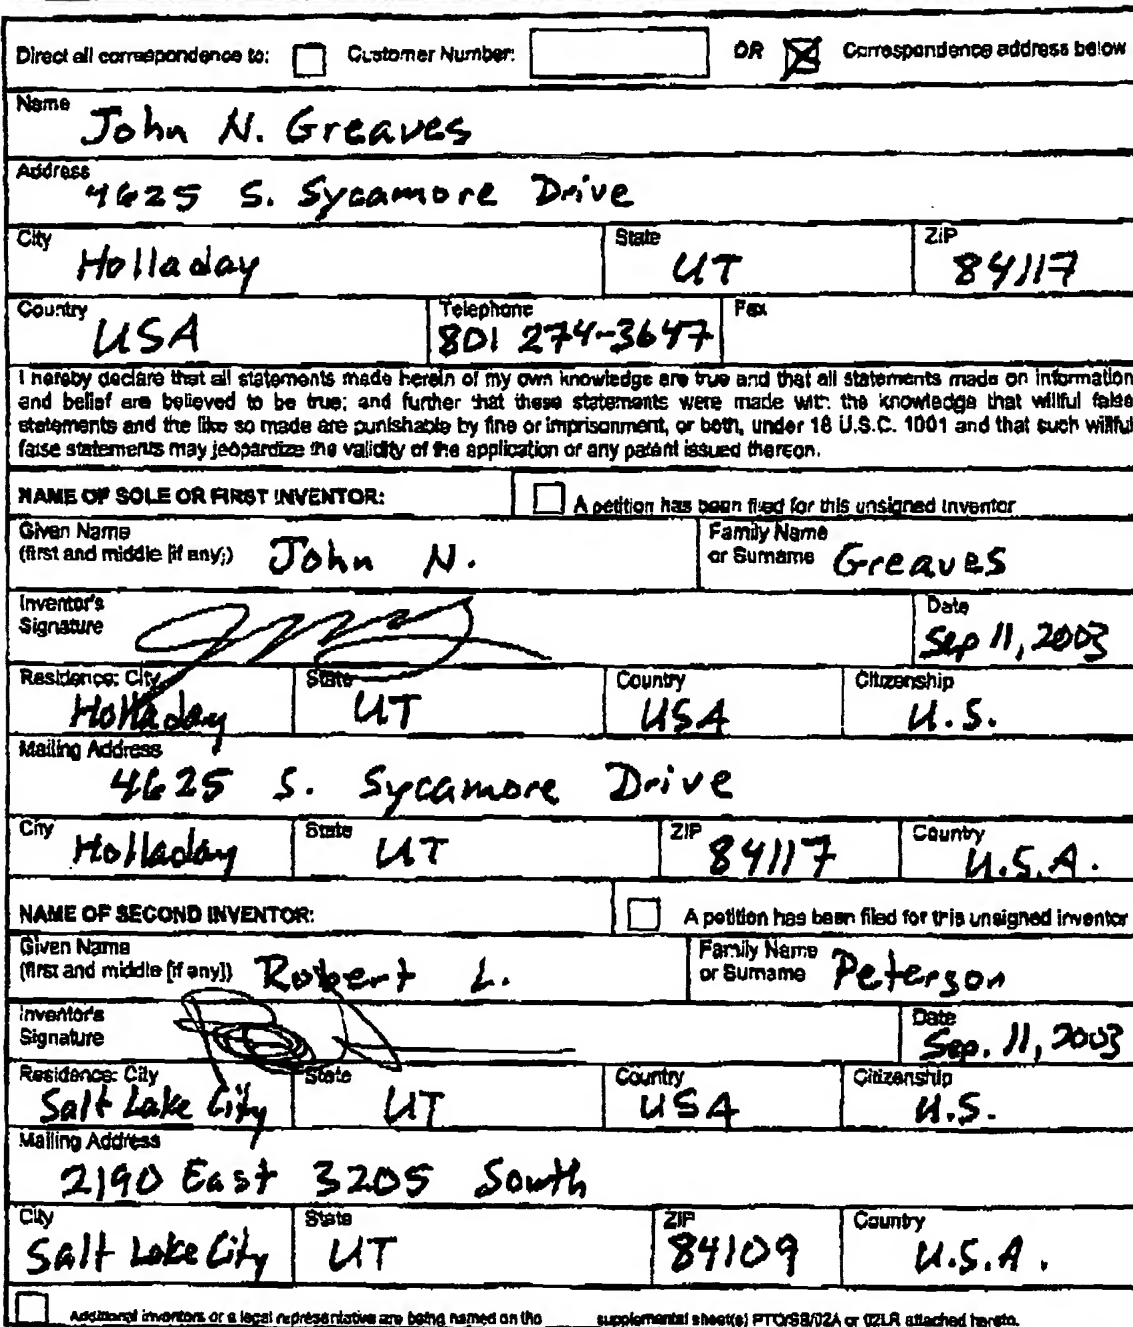 Direct all correspondence to: Customer Number: OR Correspondence address below
Name
John N. Greaves
Address
4625 S. Sycamore Drive
City State ZIP
Holladay UT 84117
Country Telephone Fax
USA 801 274-3647
I hereby declare that all statements made herein of my own knowledge are true and that all statements made on information
and belief are believed to be true; and further that these statements were made with the knowledge that willful false
statements and the like so made are punishable by fine or imprisonment, or both, under 18 U.S.C. 1001 and that such willful
false statements may jeopardize the validity of the application or any patent issued thereon.
NAME OF SOLE OR FIRST INVENTOR: A petition has been filed for this unsigned inventor
Given Name Family Name
(first and middle [if any]) John N. or Surname Greaves
Inventor's Date
Signature Sep 11, 2003
Residence: City State Country Citizenship
Holladay UT USA U.S.
Mailing Address
4625 S. Sycamore Drive
City State ZIP Country
Holladay UT 84117 U.S.A.
NAME OF SECOND INVENTOR: A petition has been filed for this unsigned inventor
Given Name Family Name
(first and middle [if any]) Robert L. or Surname Peterson
Inventor's Date
Signature Sep. 11, 2003
Residence: City State Country Citizenship
Salt Lake City UT USA U.S.
Mailing Address
2190 East 3205 South
City State ZIP Country
Salt Lake City UT 84109 U.S.A.
Additional inventors or a legal representative are being named on the supplemental sheet(s) PTO/SB/02A or 02LR attached hereto.